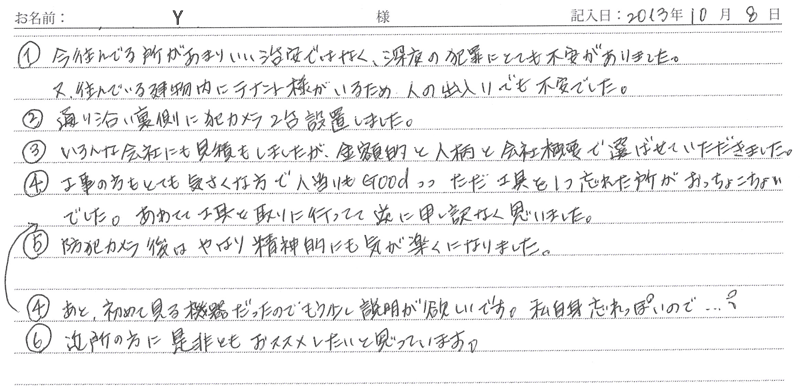 お名前： Y 様 記入日：2013年10月8日
① 今住んでる所があまりいい治安ではなく、深夜の犯罪にとても不安がありました。
又、住んでいる建物内にテナント様がいるため、人の出入りでも不安でした。
② 通り沿い裏側に犯カメラ2台設置しました。
③ いろんな会社にも見積もしましたが、金額的と人柄と会社概要で選ばせていただきました。
④ 工事の方もとても気さくな方で人当りもGoodっっ ただ工具を1つ忘れた所がおっちょこちょい
でした。あわてて工具を取りに行ってて逆に申し訳なく思いました。
⑤ 防犯カメラ後はやはり精神的にも気が楽くになりました。
④ あと、初めて見る機器だったのでもう少し説明が欲しいです。私自身忘れっぽいので…。
⑥ 近所の方に是非ともおススメしたいと思っています。